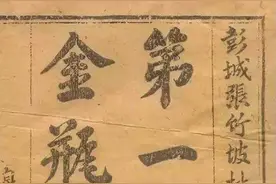 彭城張竹坡批
第一
金瓶